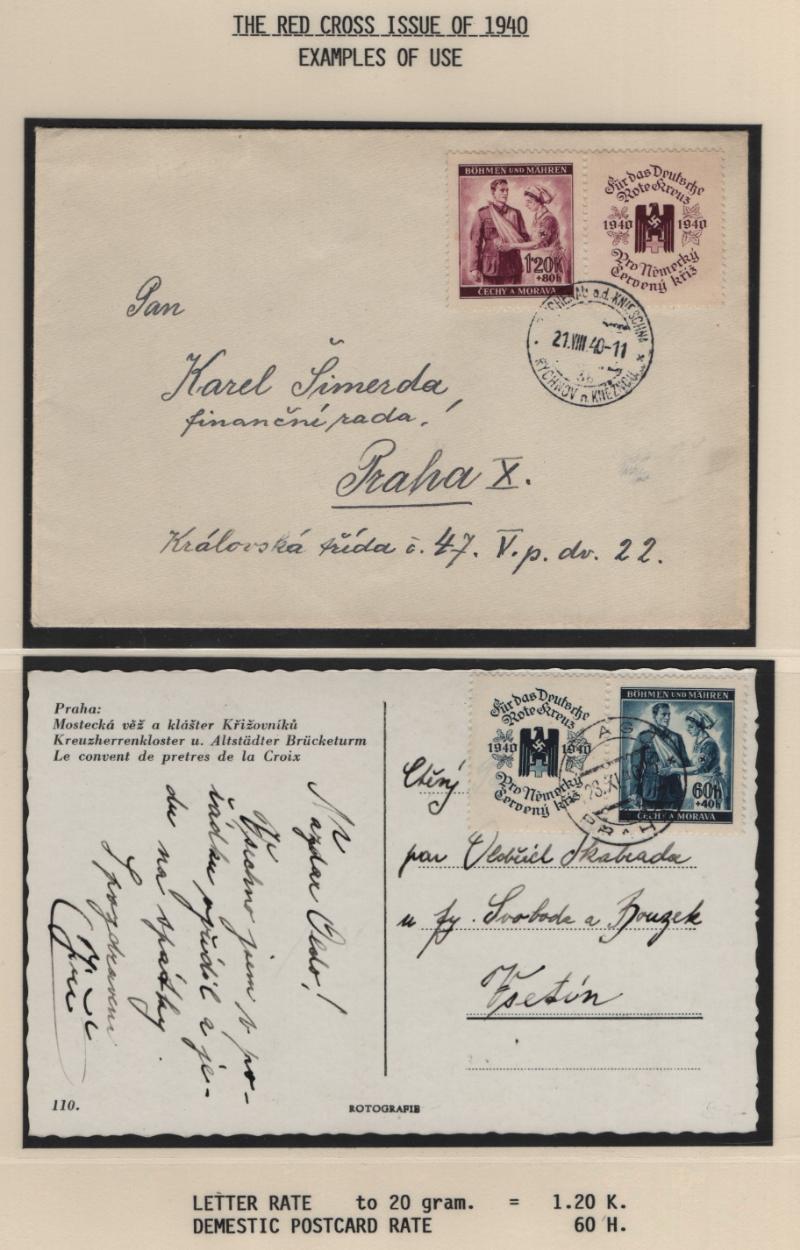 THE RED CROSS ISSUE OF 1940
EXAMPLES OF USE
BÖHMEN UND MÄHREN
1'20K
+80h
ČECHY A MORAVA
Für das Deutsche
Rote Kreuz
1940 1940
Pro Německý
Červený kříž
a.d. KNIESCHNA
21.VIII 40-11
RYCHNOV n. KNĚŽNOU
Pan
Karel Šimerda
finanční rada!
Praha X.
Královská třída č. 47. V. p. dv. 22.
Praha:
Mostecká věž a klášter Křižovníků
Kreuzherrenkloster u. Altstädter Brücketurm
Le convent de pretres de la Croix
Nazdar Oldo!
Všechno jsem v po-
řádku vyřídil a je-
du na zpátky.
S pozdravem
Jiří
110.
ROTOGRAFIE
Für das Deutsche
Rote Kreuz
1940 1940
Pro Německý
Červený kříž
BÖHMEN UND MÄHREN
60h
+40h
ČECHY A MORAVA
Ctěný
pan Oldřich Skabrada
u fy. Svoboda a Bouzek
Vsetín
LETTER RATE to 20 gram. = 1.20 K.
DEMESTIC POSTCARD RATE 60 H.